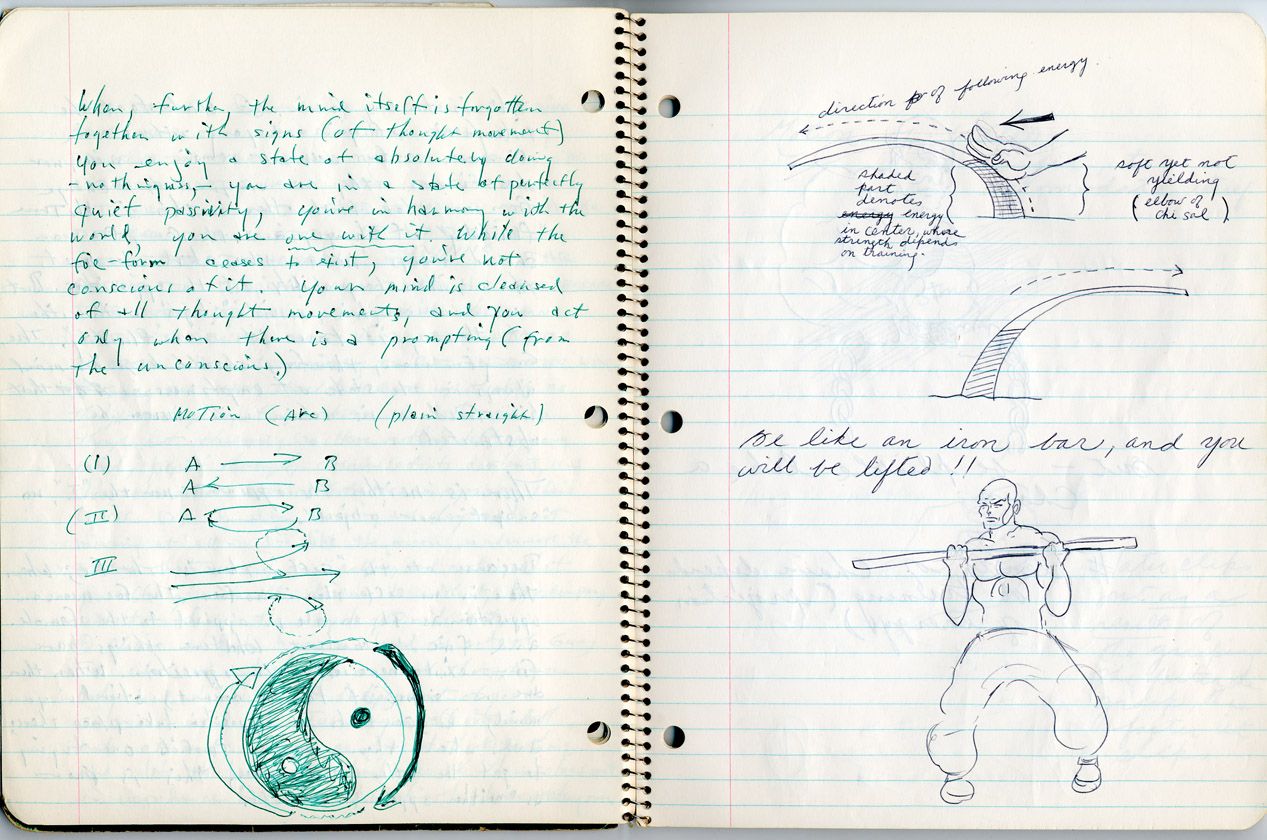 When, further, the mind itself is forgotten
together with signs (of thought movement)
you enjoy a state of absolutely doing
-nothingness, you are in a state of perfectly
quiet passivity, you're in harmony with the
world, you are one with it. While the
foe-form ceases to exist, you're not
conscious of it. Your mind is cleansed
of all thought movements, and you act
only when there is a prompting (from
the unconscious.)
MOTION (Arc) (plain straight)
(I) A B
A B
(II) A B
III
direction of following energy.
shaded
part
denotes
energy energy
in center, whose
strength depends
on training.
soft yet not
yielding
(elbow of
chi sao)
Be like an iron bar, and you
will be lifted!!